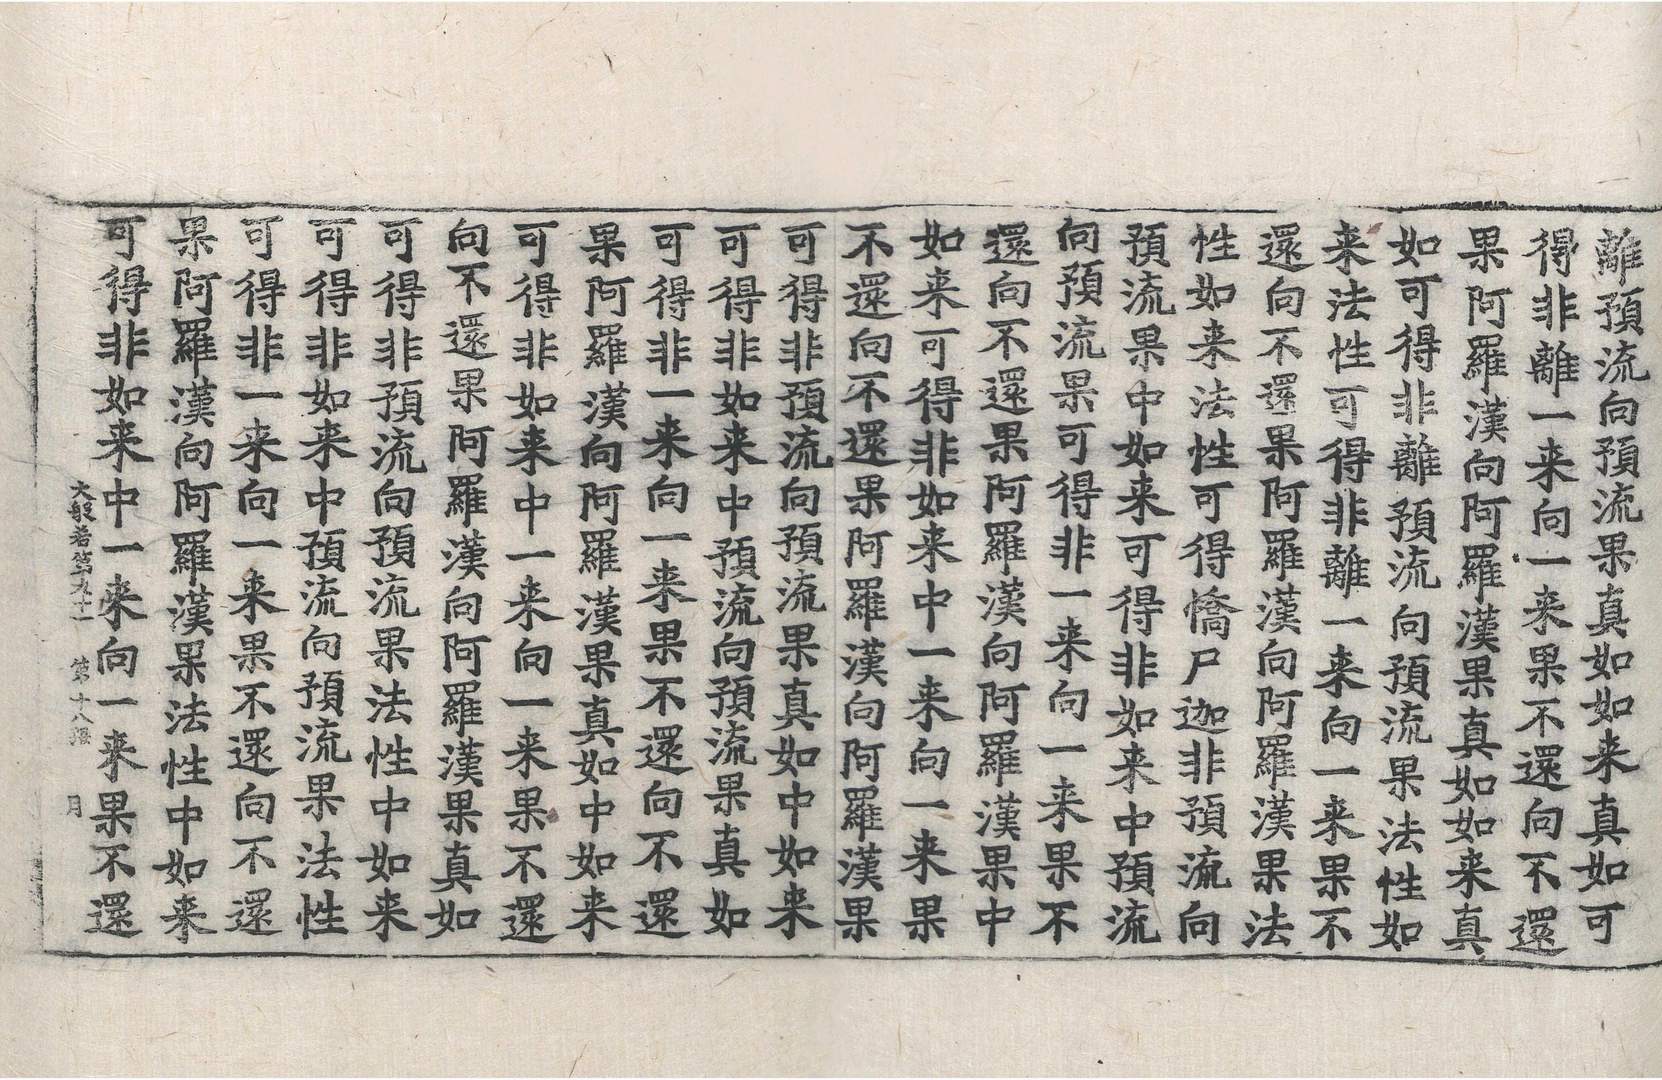 離預流向預流果真如如来真如可
得非離一来向一来果不還向不還
果阿羅漢向阿羅漢果真如如来真
如可得非離預流向預流果法性如
来法性可得非離一来向一来果不
還向不還果阿羅漢向阿羅漢果法
性如来法性可得憍尸迦非預流向
預流果中如来可得非如来中預流
向預流果可得非一来向一来果不
還向不還果阿羅漢向阿羅漢果中
如来可得非如来中一来向一来果
不還向不還果阿羅漢向阿羅漢果
可得非預流向預流果真如中如来
可得非如来中預流向預流果真如
可得非一来向一来果不還向不還
果阿羅漢向阿羅漢果真如中如来
可得非如来中一来向一来果不還
向不還果阿羅漢向阿羅漢果真如
可得非預流向預流果法性中如来
可得非如来中預流向預流果法性
可得非一来向一来果不還向不還
果阿羅漢向阿羅漢果法性中如来
可得非如来中一来向一来果不還
大般若第九十一 第十八張 月